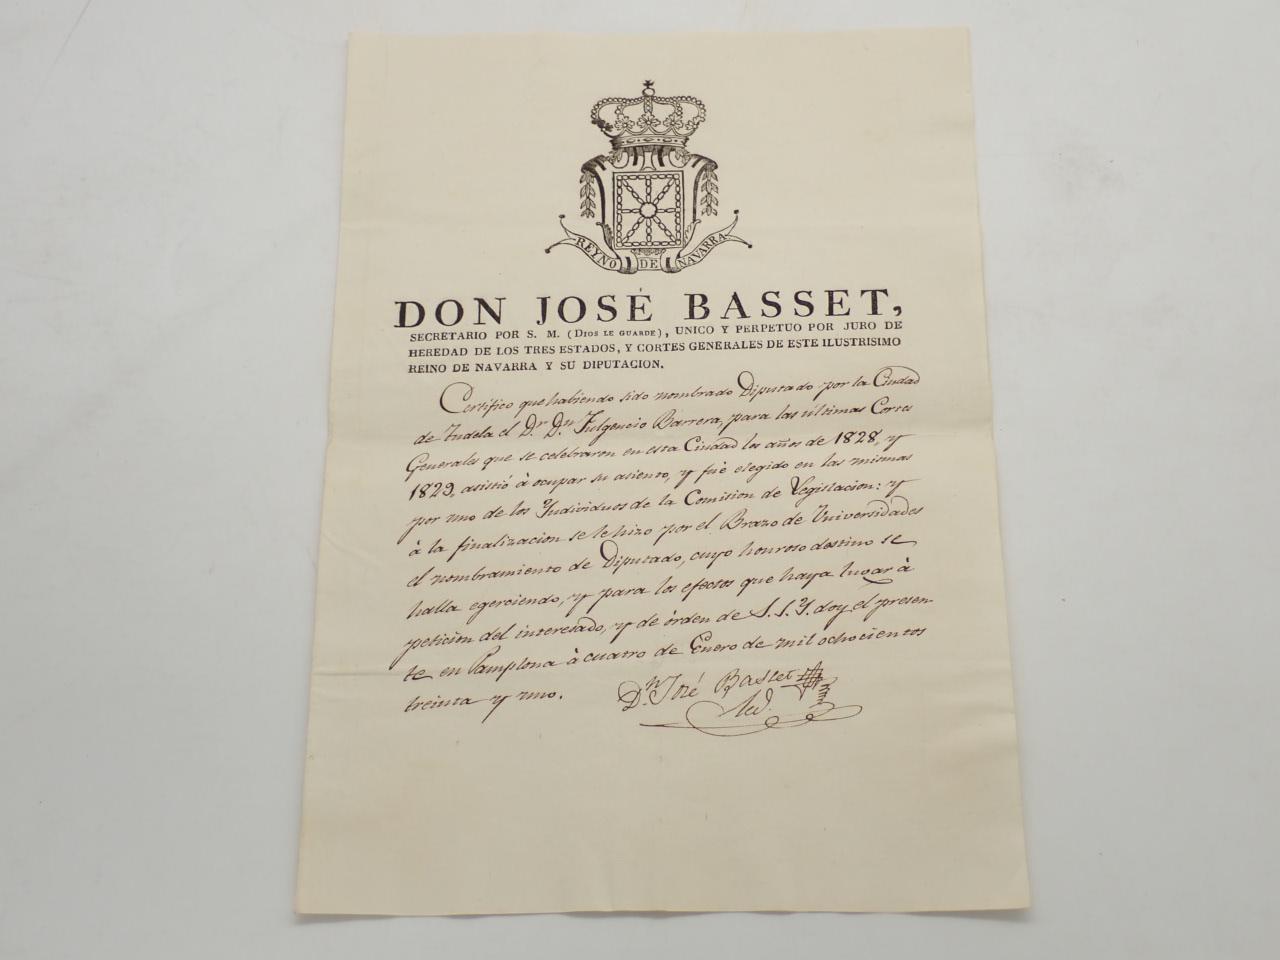 REYNO DE NAVARRA
DON JOSÉ BASSET,
SECRETARIO POR S. M. (DIOS LE GUARDE), UNICO Y PERPETUO POR JURO DE
HEREDAD DE LOS TRES ESTADOS, Y CORTES GENERALES DE ESTE ILUSTRISIMO
REINO DE NAVARRA Y SU DIPUTACION.
Certifico que habiendo sido nombrado Diputado por la Ciudad
de Tudela el Dr. Dn. Fulgencio Barrera, para las últimas Cortes
Generales que se celebraron en esta Ciudad los años de 1828, y
1829, asistió à ocupar su asiento, y fué elegido en las mismas
por uno de los Individuos de la Comision de Legislacion: y
à la finalizacion se le hizo por el Brazo de Universidades
el nombramiento de Diputado, cuyo honroso destino se
halla egerciendo, y para los efectos que haya lugar à
peticion del interesado, y de órden de S. S. Y. doy el presen-
te en Pamplona à cuatro de Enero de mil ochocientos
treinta y uno.
Dn. José Basset
Sec.